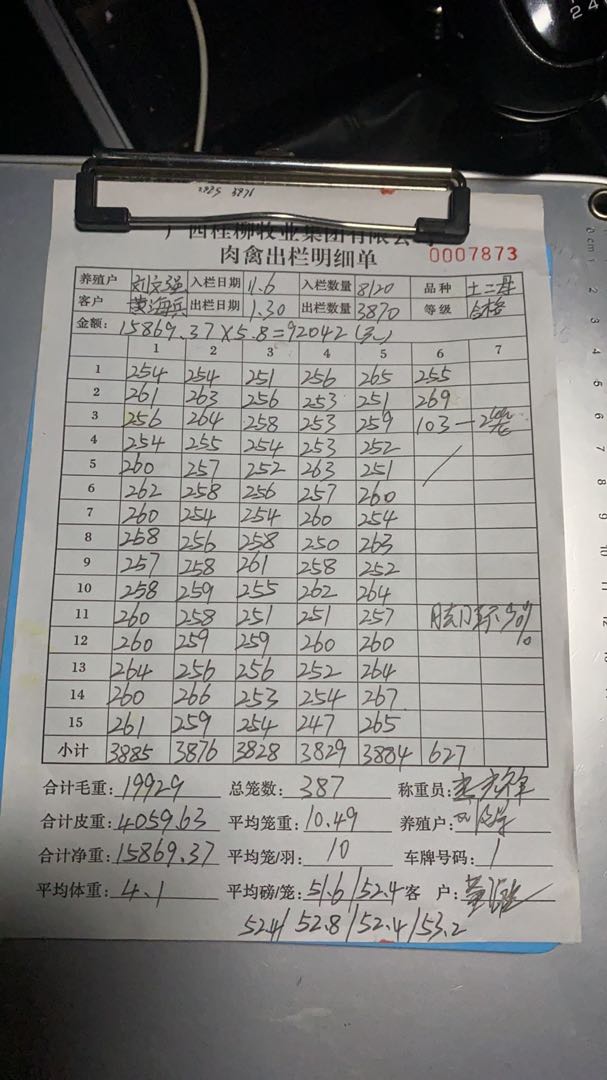 2885 3876
广西桂柳牧业集团有限公司
肉禽出栏明细单 0007873
养殖户 刘文强 入栏日期 11.6 入栏数量 8120 品种 土二号
客户 黄海兵 出栏日期 1.30 出栏数量 3870 等级 合格
金额: 15869.37×5.8=92042(元)
1 2 3 4 5 6 7
1 254 254 251 256 265 255
2 261 263 256 253 251 269
3 256 264 258 253 259 103—2
4 254 255 254 253 252
5 260 257 252 263 251 /
6 262 258 256 257 260
7 260 254 254 260 254
8 258 256 258 250 263
9 257 258 261 258 252
10 258 259 255 262 264
11 260 258 251 251 257
12 260 259 259 260 260
13 264 256 256 252 264
14 260 266 253 254 267
15 261 259 254 247 265
小计 3885 3876 3828 3829 3884 627
合计毛重: 19929 总笼数: 387 称重员:
合计皮重: 4059.63 平均笼重: 10.49 养殖户:
合计净重: 15869.37 平均笼/羽: 10 车牌号码: 1
平均体重: 4.1 平均磅/笼: 51.6/52.4 客 户:
52.4/52.8/52.4/53.2